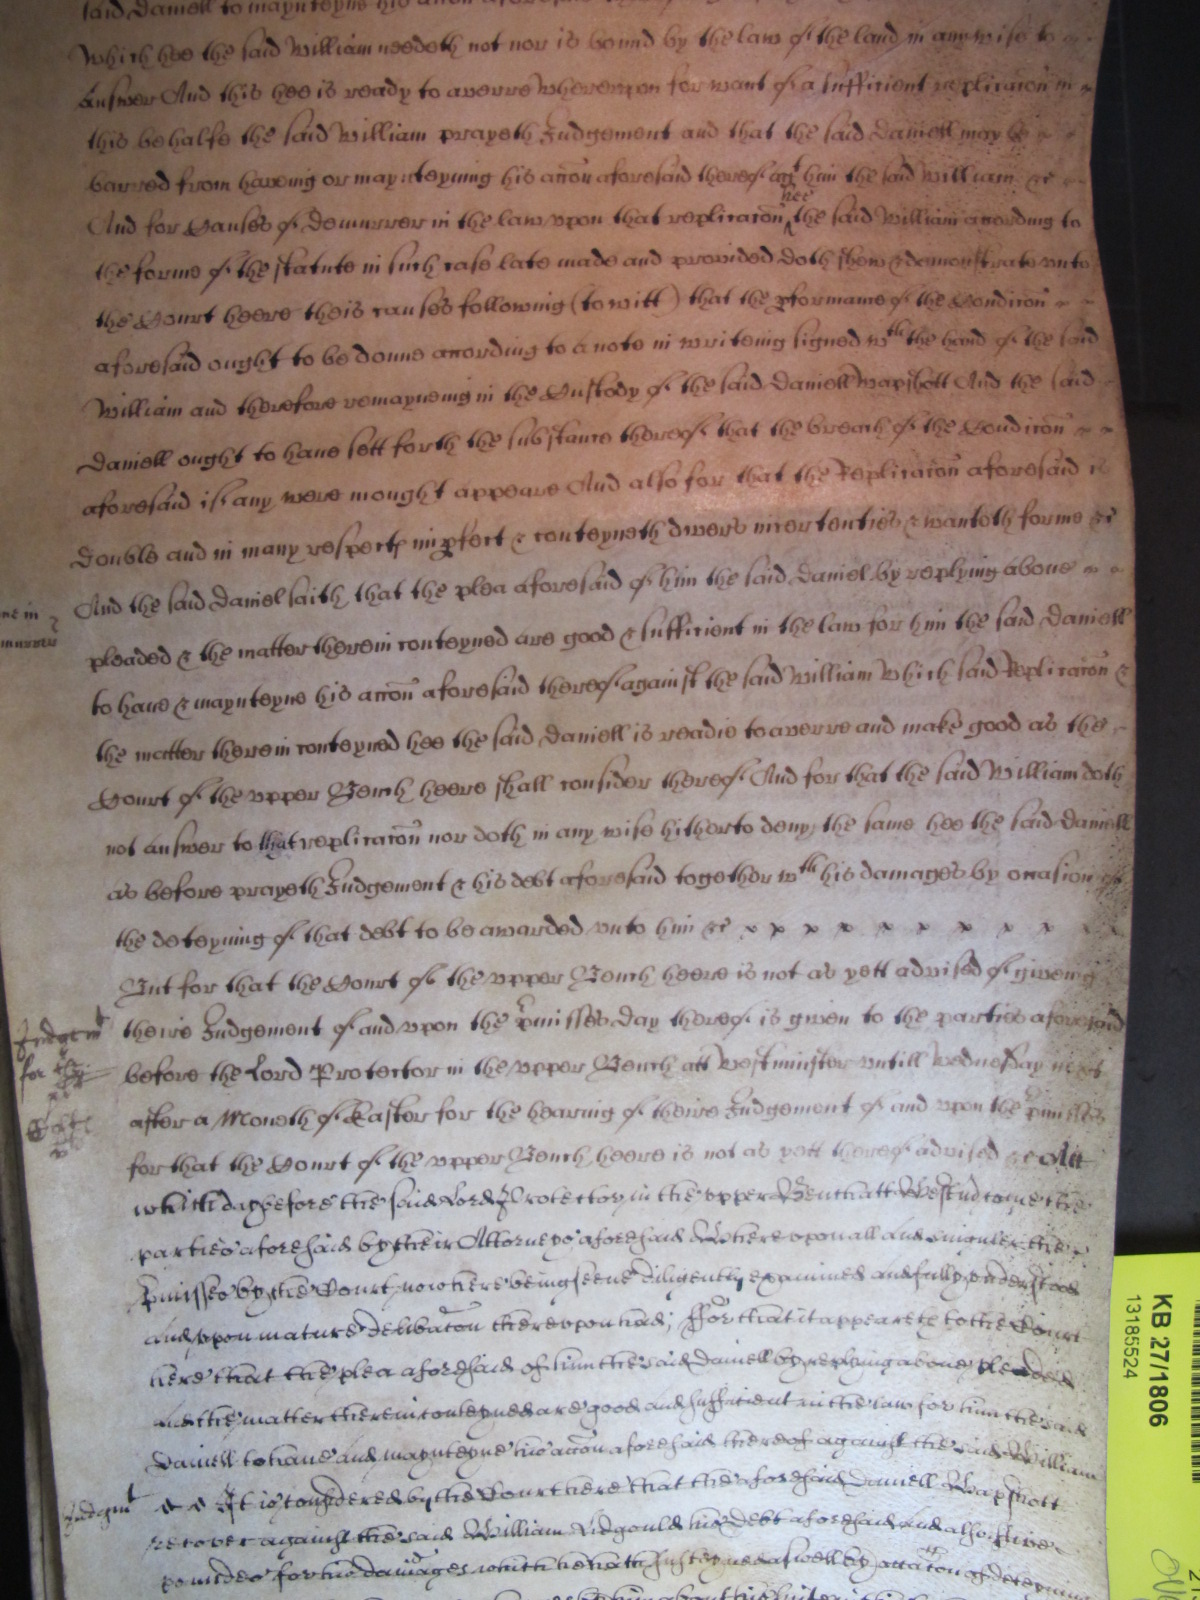 said Daniell to maynteyne his accon aforesaid
Which hee the said William needeth not nor is bound by the law of the land in any wise to
Answer And this hee is ready to averre Whereupon for want of a sufficient replicacon in
this behalfe the said William prayeth Judgement and that the said Daniell may be
barred from haveing or maynteyning his accon aforesaid thereof agt him the said William &c
And for Causes of demurrer in the law upon that replicacon hee the said William according to
the forme of the statute in such case late made and provided doth shew & demonstrate unto
the Court heere theis causes following (to witt) that the pformance of the Condicon
aforesaid ought to be donne according to a note in writeing signed wth the hand of the said
William and therefore remayneing in the Custody of the said Daniell Wapshott And the said
Daniell ought to have sett forth the substance thereof that the breach of the Condicon
aforesaid if any were mought appeare And also for that the Replicacon aforesaid is
double and in many respects impfect & conteyneth divers incertenties & wanteth forme &c
And the said Daniel saith that the plea aforesaid of him the said Daniel by replying above
pleaded & the matter therein conteyned are good & sufficient in the law for him the said Daniell
to have & maynteyne his accon aforesaid thereof against the said William Which said Replicacon &
the matter therein conteyned hee the said Daniell is readie to averre and make good as the
Court of the upper Bench heere shall consider thereof And for that the said William doth
not Answer to that replicacon nor doth in any wise hitherto deny the same hee the said Daniell
as before prayeth Judgement & his debt aforesaid together wth his damages by occasion of
the deteyning of that debt to be awarded unto him &c
But for that the Court of the upper Bench heere is not as yett advised of giveing
theire Judgement of and upon the pmisses day thereof is given to the parties aforesaid
before the Lord Protector in the upper Bench att Westminster untill Wednesday next
after a Moneth of Easter for the hearing of theire Judgement of and upon the pmisses
for that the Court of the upper Bench heere is not as yett thereof advised &c Att
which day before the said Lord Protector in the upper Bench att Westm come the
parties aforesaid by their Attorneys aforesaid Whereupon all and singuler the
pmisses by the Court now here being seene diligently examined and fully understood
and upon mature delibacon thereupon had; For that it appeareth to the Court
here that the plea aforesaid of him the said Daniell by replying above pleaded
and the matter therein conteyned are good and sufficient in the law for him the said
Daniell to have and maynteyne his accon aforesaid thereof against the said William
It is considered by the Court here that the aforesaid Daniell Wapshott
recover against the said William Lidgould his debt aforesaid and also five
poundes for his damages which he hath susteyned aswell by occacon of deteyning
Judgmt
for the
Judgmt
KB 27/1806
13185524